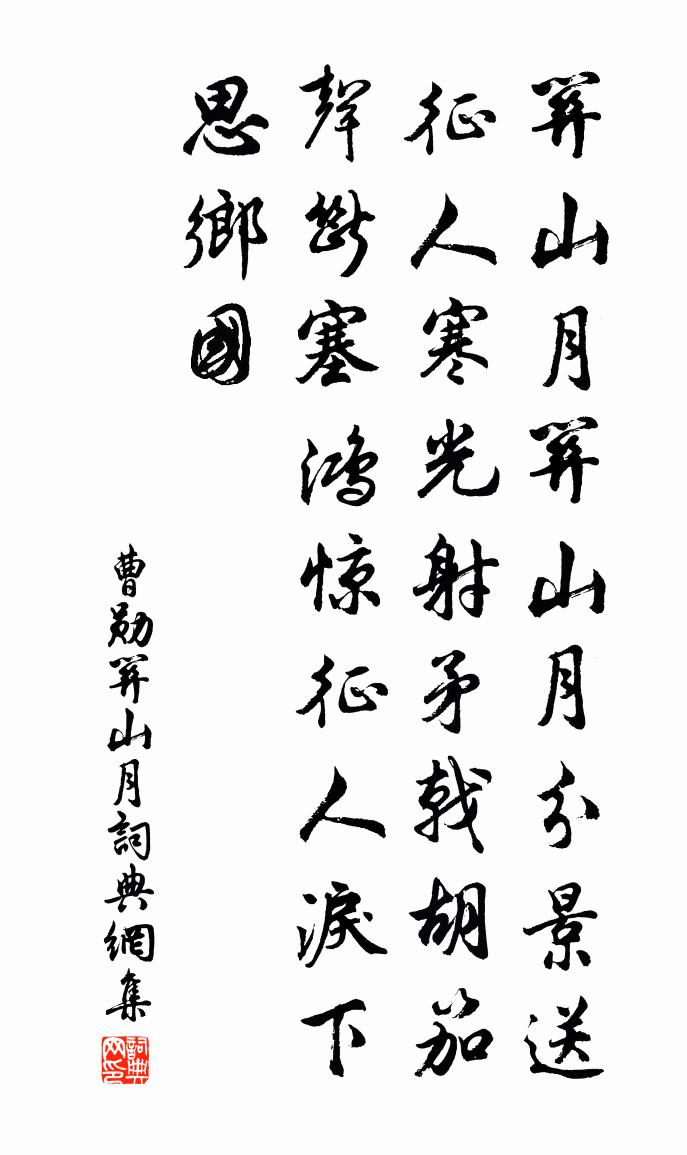 関山月関山月分景送
征人寒光射矛戟胡笳
聲斷塞鴻惊征人淚下
思鄉國
曹勛関山月詞典網集
詞典网印